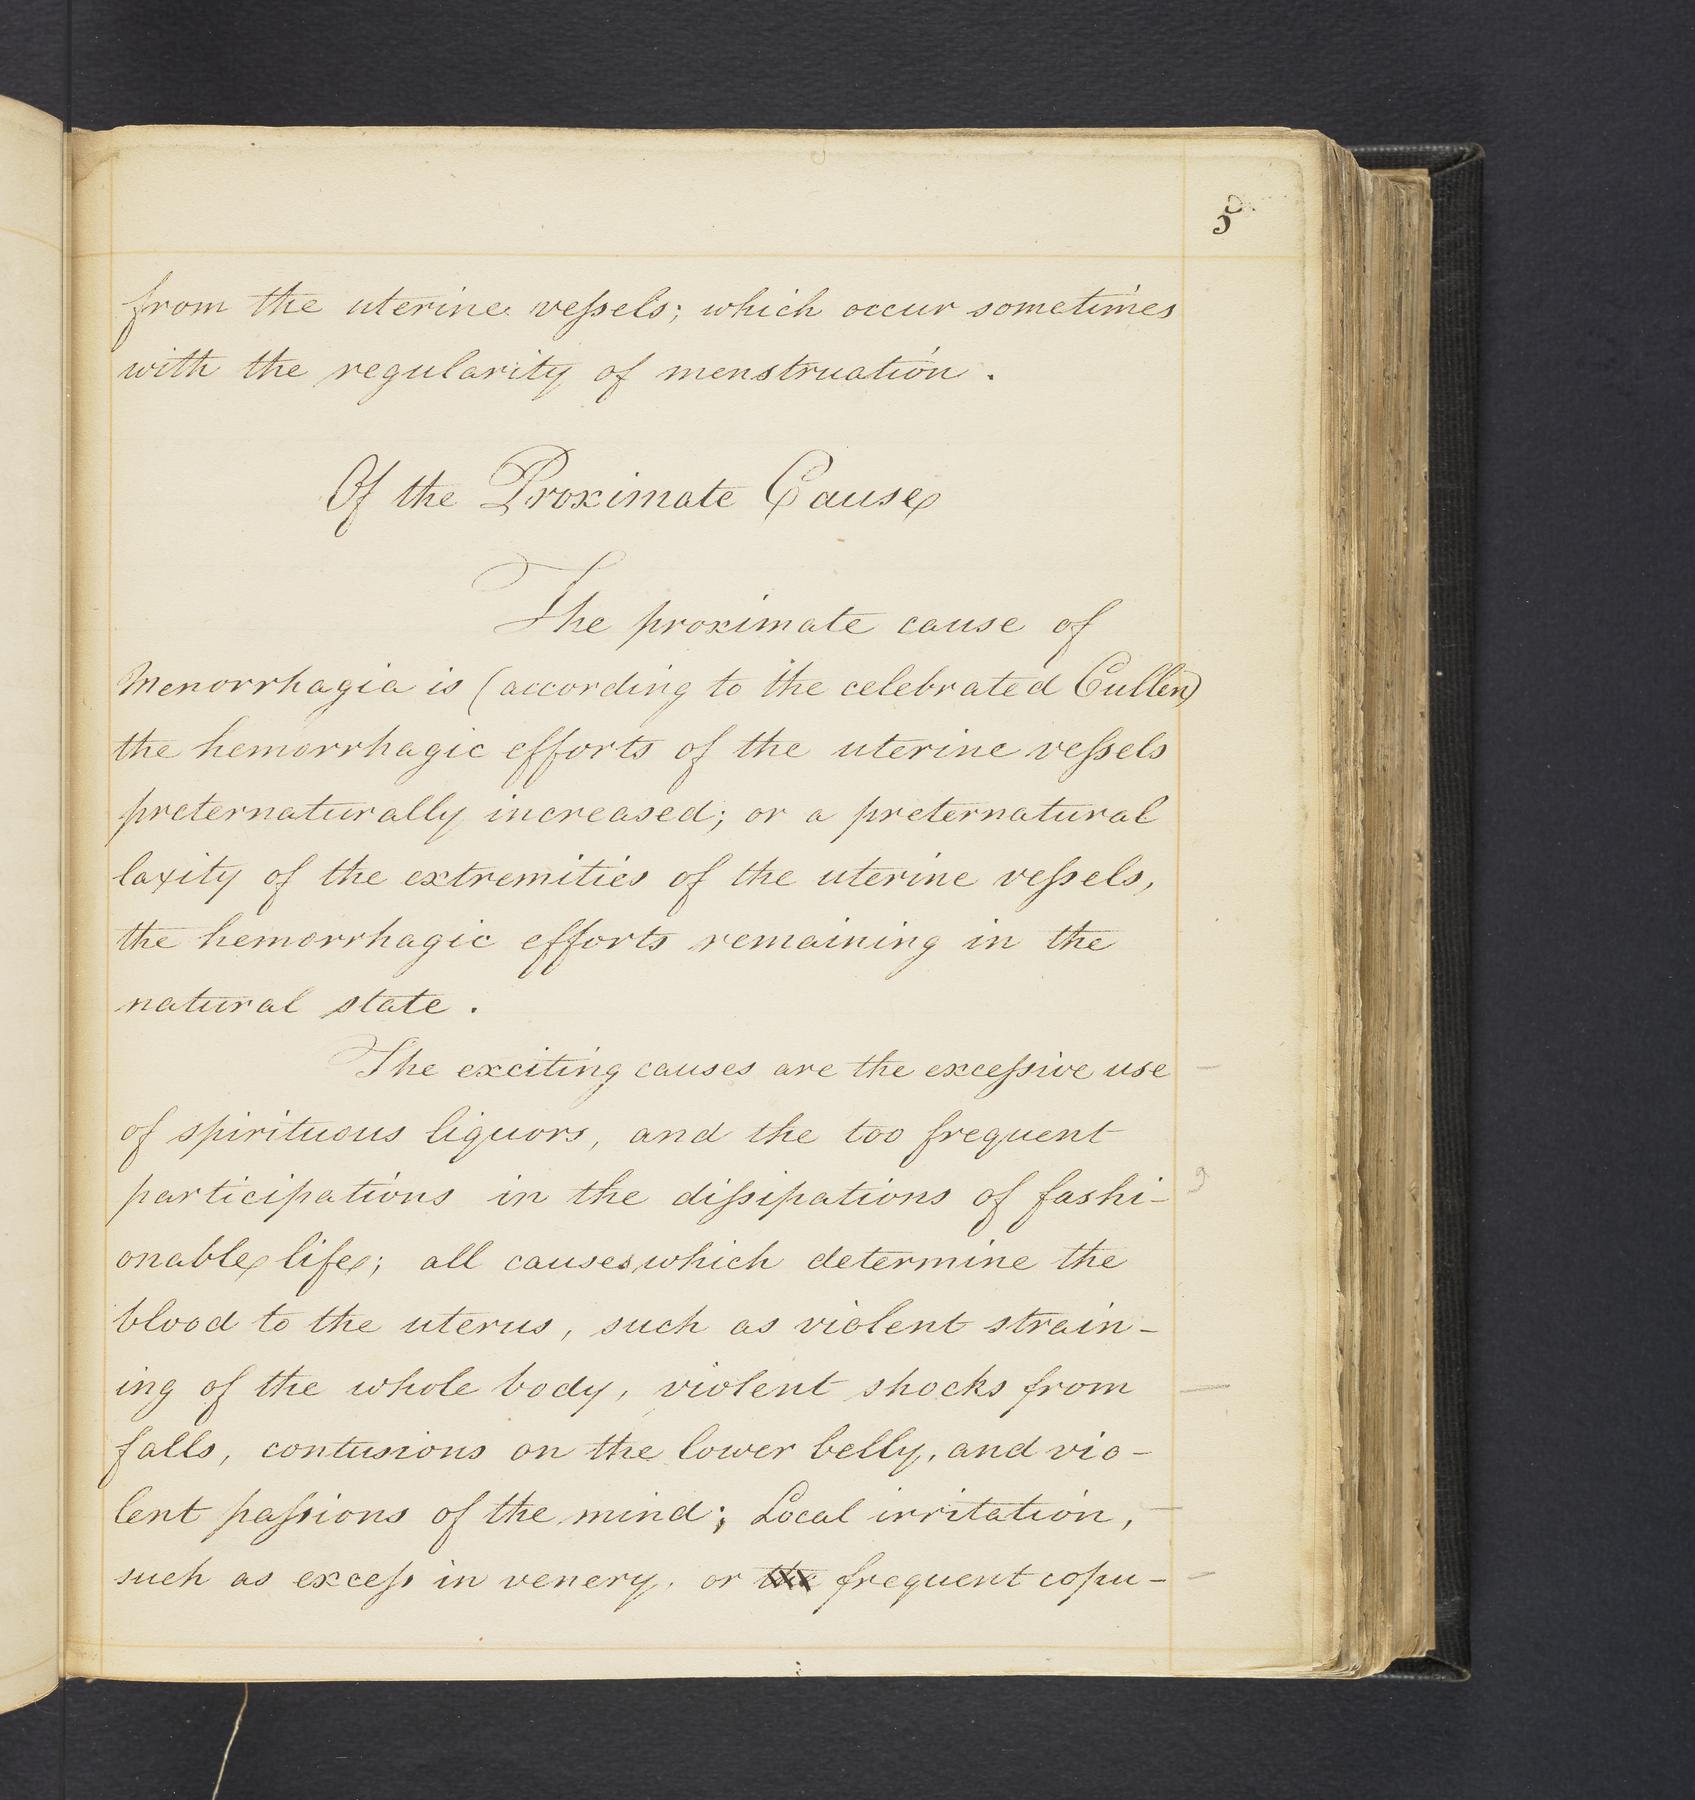 5
from the uterine vessels; which occur sometimes
with the regularity of menstruation.
Of the Proximate Cause
The proximate cause of
Menorrhagia is (according to the celebrated Cullen)
the hemorrhagic efforts of the uterine vessels
preternaturally increased; or a preternatural
laxity of the extremities of the uterine vessels,
the hemorrhagic efforts remaining in the
natural state.
The exciting causes are the excessive use
of spirituous liquors, and the too frequent
participations in the dissipations of fashi-
onable life; all causes which determine the
blood to the uterus, such as violent strain-
ing of the whole body, violent shocks from
falls, contusions on the lower belly, and vio-
lent passions of the mind; Local irritation,
such as excess in venery, or the frequent copu-